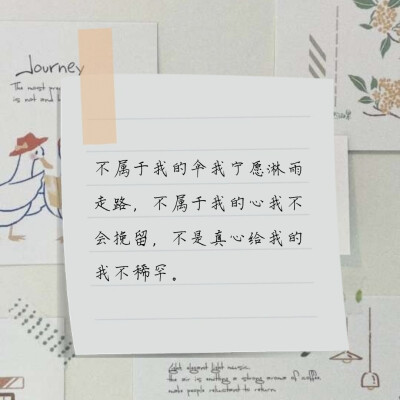 Journey
The most
is not and
不属于我的伞我宁愿淋雨
走路，不属于我的心我不
会挽留，不是真心给我的
我不稀罕。
light elegant light music
the air is emitting a strong aroma of coffee
make people reluctant to return